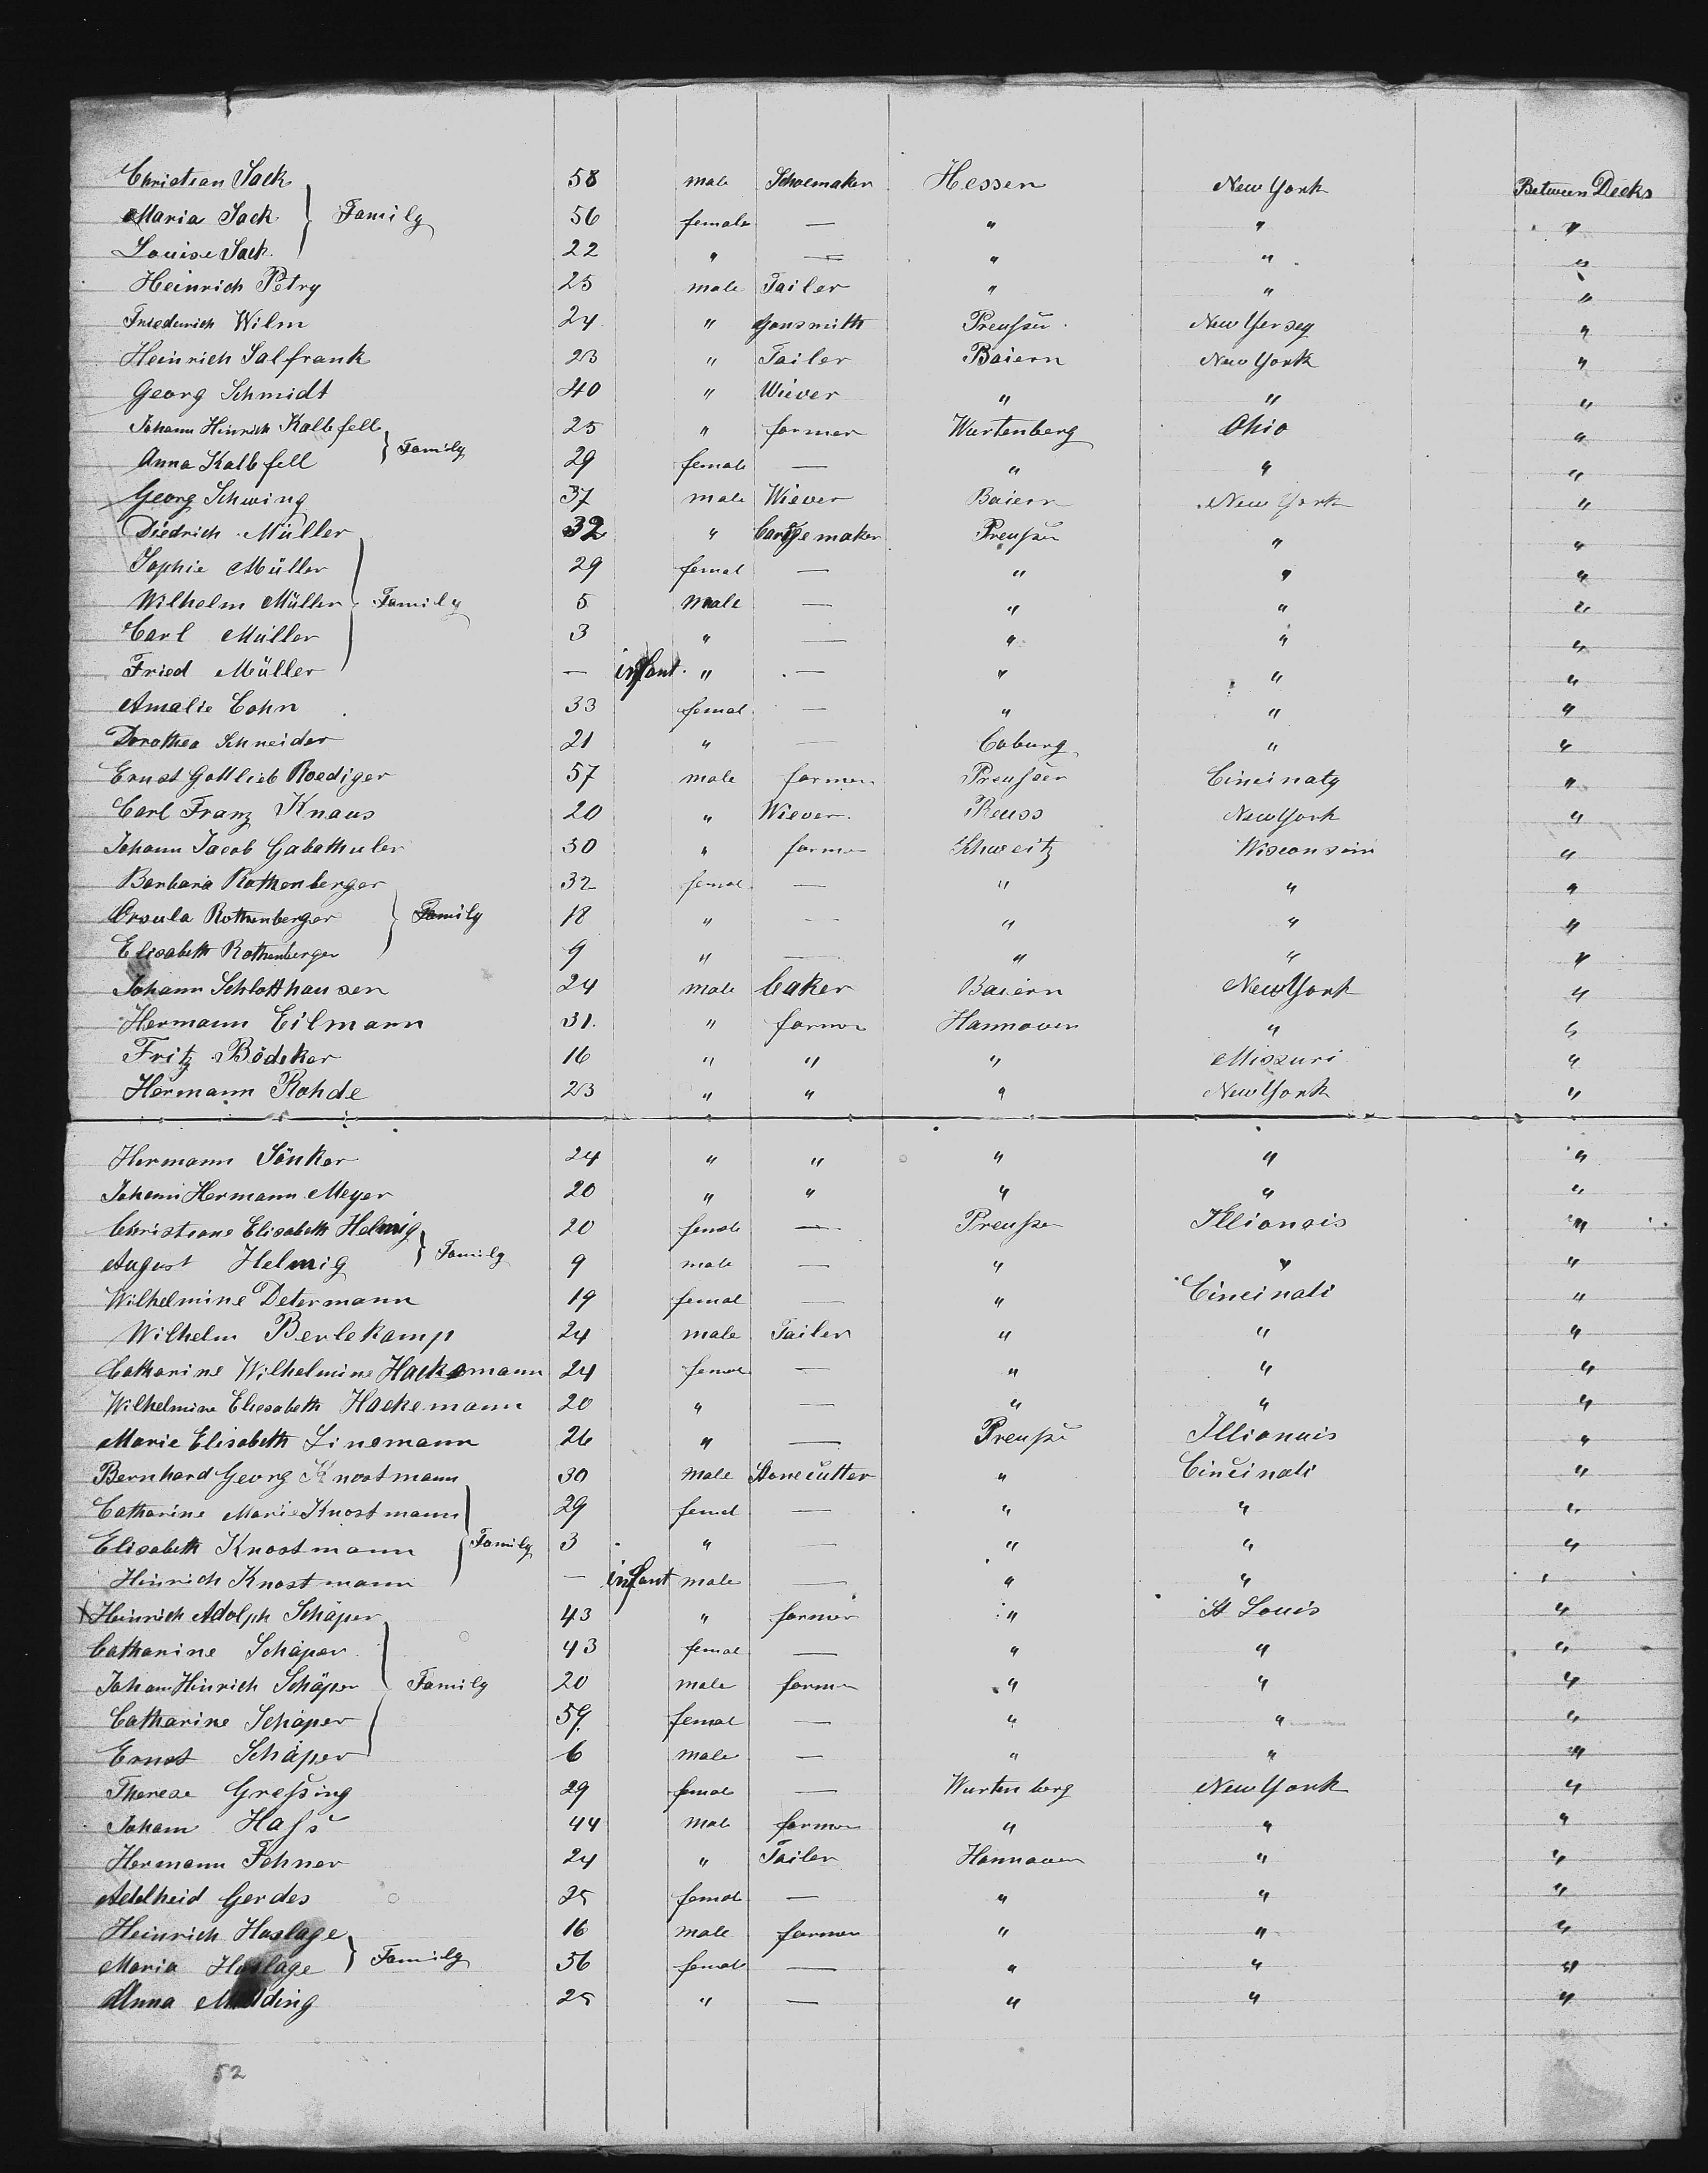 Christian Sack 58 male Schoemaker Hessen New York Between Decks
Maria Sack } Family 56 female — " " "
Louise Sack 22 " — " " "
Heinrich Petry 25 male Tailer " " "
Friederich Wilm 24 " Gonsmith Preußen New Yersey "
Heinrich Salfrank 23 " Tailer Baiern New York "
Georg Schmidt 40 " Wiever " " "
Johann Heinrich Kalbfell 25 " former Wurtenberg Ohio "
Anna Kalbfell } Family 29 female — " " "
Georg Schwing 37 male Wiever Baiern New York "
Diedrich Müller 32 " maker Preußen " "
Sophie Müller 29 femal — " " "
Wilhelm Müller } Family 5 male — " " "
Carl Müller 3 " — " " "
Fried Müller — infant " — " " "
Amalie Cohn 33 femal — " " "
Dorothea Schneider 21 " — Coburg " "
Ernst Gottlieb Roediger 57 male former Preußen Cincinaty "
Carl Franz Knaus 20 " Wiever Reuss New York "
Johann Jacob Gabathuler 30 " former Schweitz Wisconsin "
Barbara Rothenberger 32 femal — " " "
Ursula Rothenberger } Family 18 " — " " "
Elisabeth Rothenberger 9 " — " " "
Johann Schlotthausen 24 male baker Baiern New York "
Hermann Eilmann 31 " former Hannover " "
Fritz Bödeker 16 " " " Missuri "
Hermann Rohde 23 " " " New York "
Hermann Sönker 24 " " " " "
Johann Hermann Meyer 20 " " " " "
Christiane Elisabeth Helmig 20 female — Preußen Illionois "
August Helmig } Family 9 male — " " "
Wilhelmine Determann 19 femal — " Cincinati "
Wilhelm Berlekamp 24 male Tailer " " "
Catharine Wilhelmine Hackemann 24 femal — " " "
Wilhelmine Elisabeth Hackemann 20 " — " " "
Marie Elisabeth Linemann 26 " — Preuße Illionois "
Bernhard Georg Knostmann 30 male Stonecutter " Cincinati "
Catharine Marie Knostmann 29 femal — " " "
Elisabeth Knostmann } Family 3 " — " " "
Hinrich Knostmann — infant male — " " "
X Heinrich Adolph Schäper 43 " former " St Louis "
Catharine Schäper 43 femal — " " "
Johann Hinrich Schäper } Family 20 male former " " "
Catharine Schäper 59 femal — " " "
Ernst Schäper 6 male — " " "
Therese Greßing 29 female — Wurtenberg New York "
Johann Haß 44 male former " " "
Hermann Fehner 24 " Tailer Hannover " "
Adelheid Gerdes 25 femal — " " "
Heinrich Haslage 16 male former " " "
Maria Haslage } Family 56 female — " " "
Anna 25 " — " " "
52